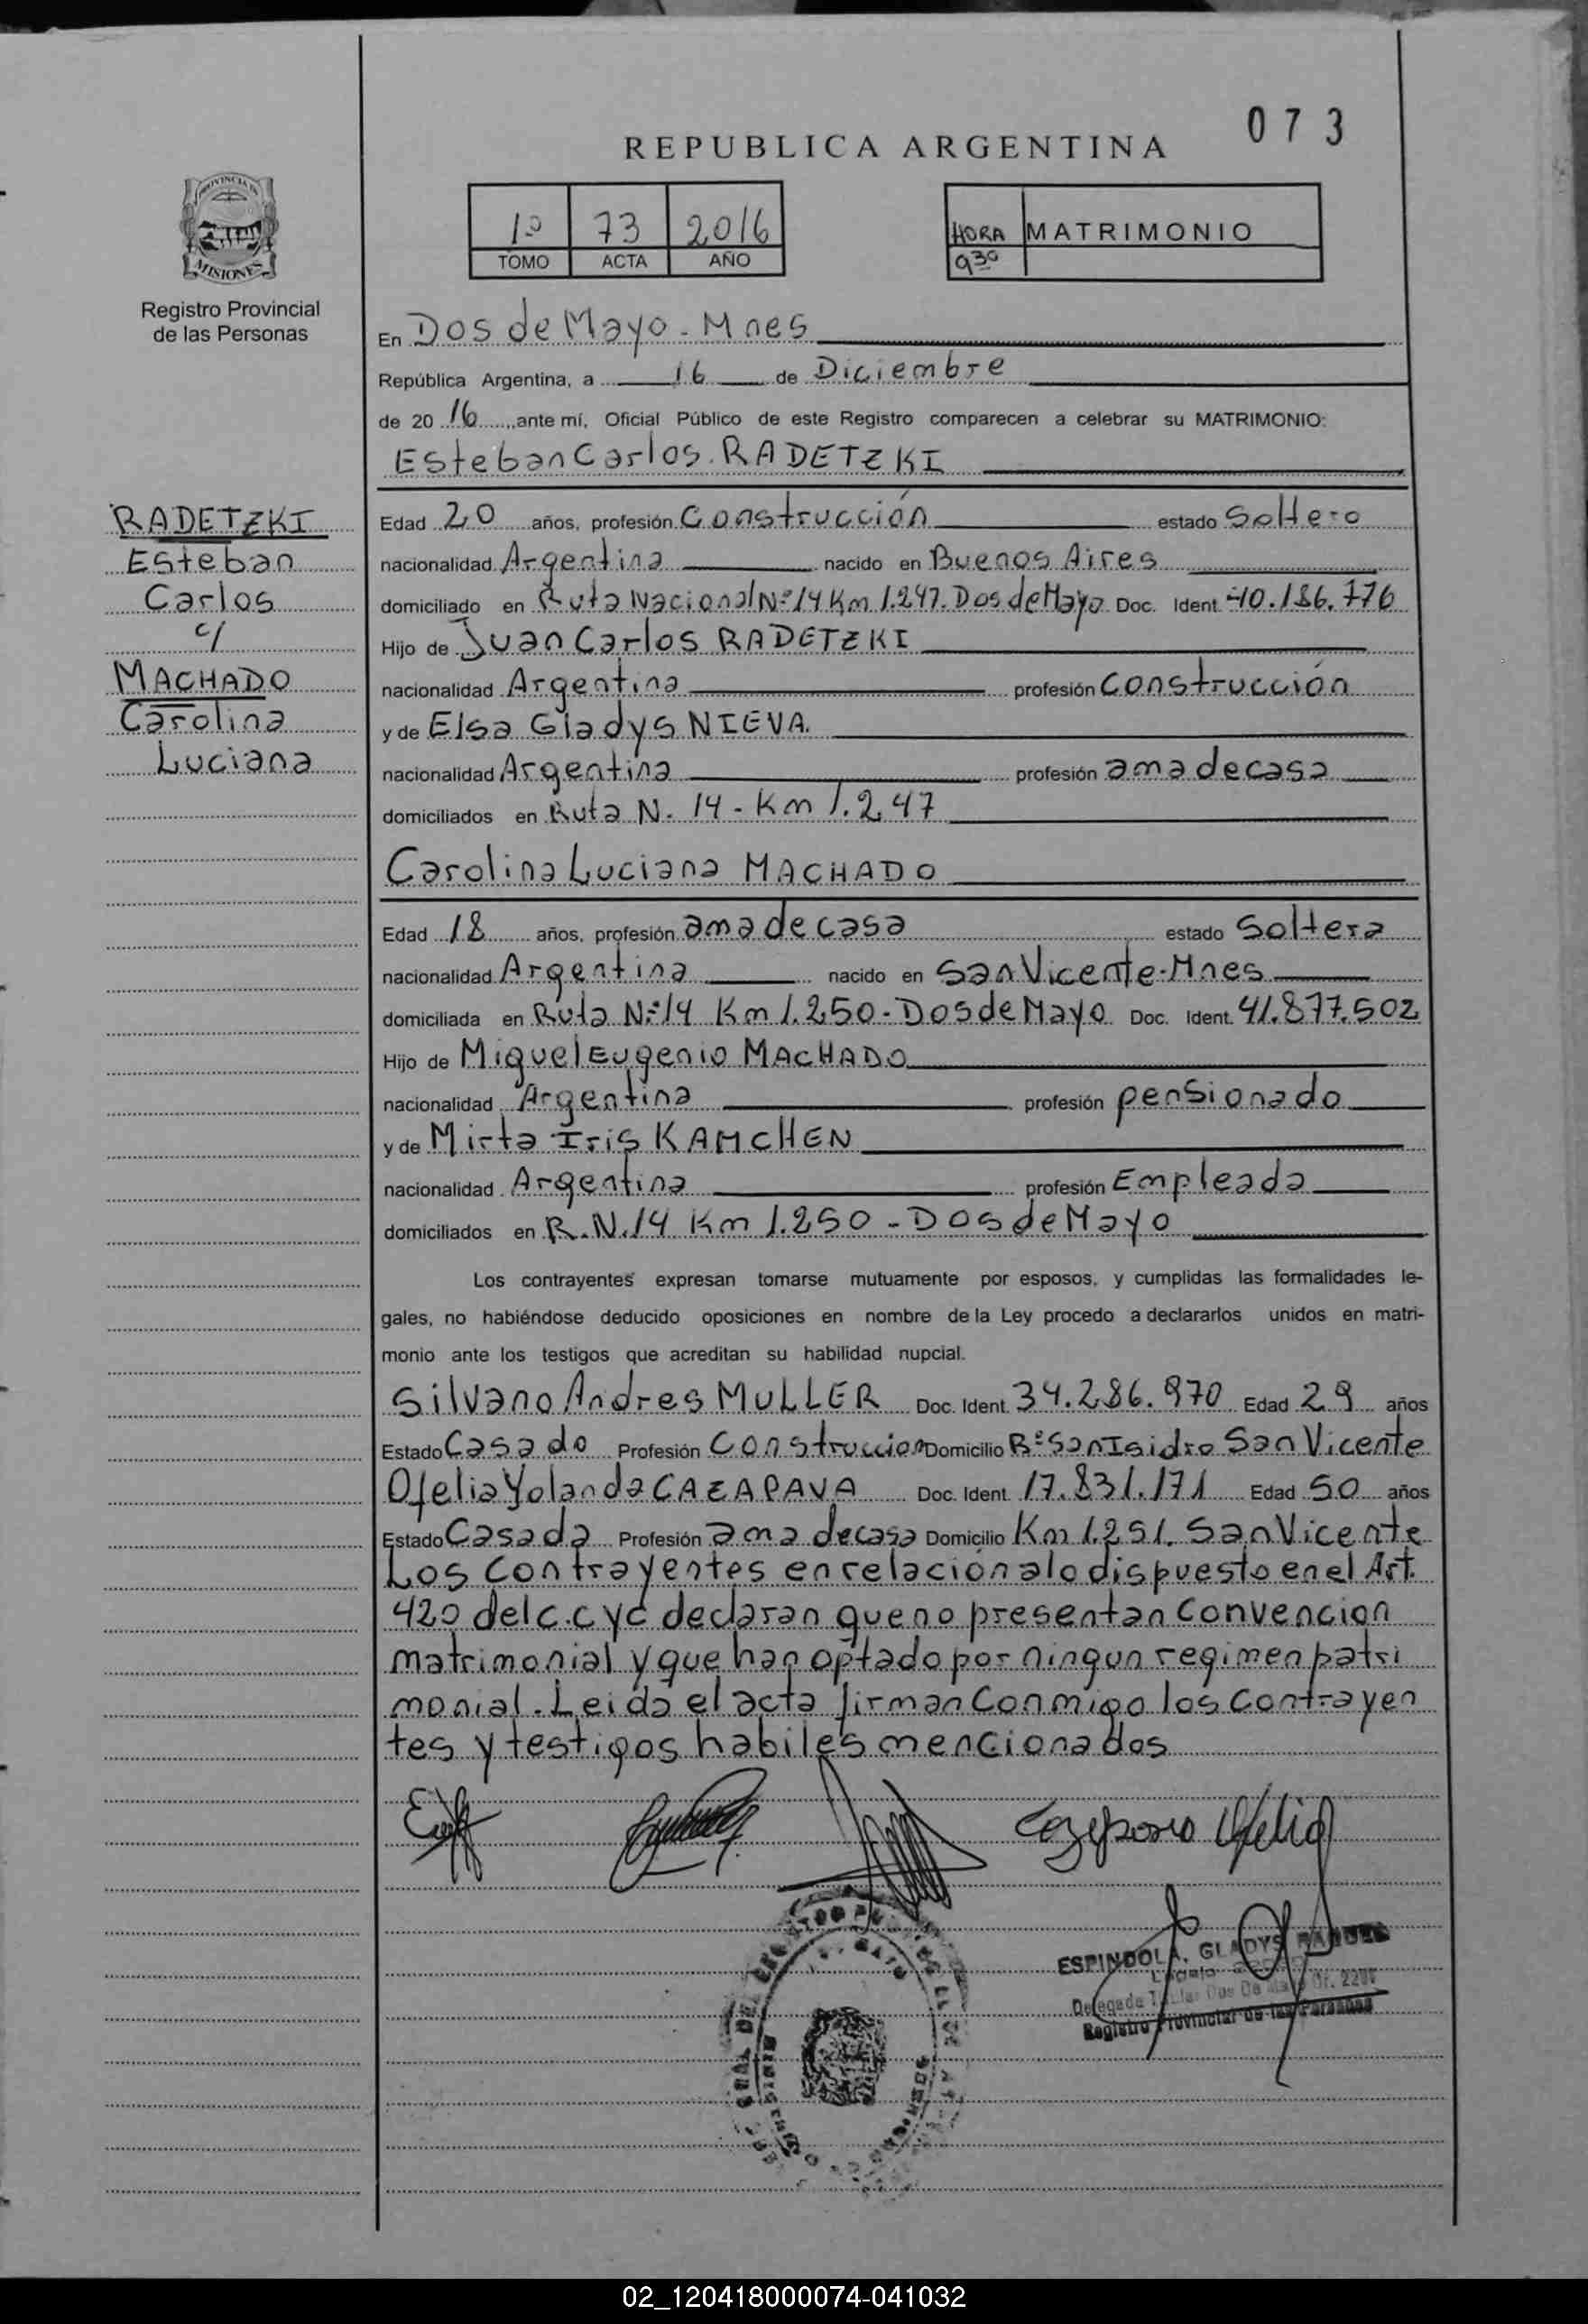 073
REPUBLICA ARGENTINA
PROVINCIA DE
MISIONES
Registro Provincial
de las Personas
1º 73 2016
TOMO ACTA AÑO
HORA MATRIMONIO
9 30
En Dos de Mayo - Mnes
República Argentina, a 16 de Diciembre
de 20 16, ante mí, Oficial Público de este Registro comparecen a celebrar su MATRIMONIO:
Esteban Carlos RADETZKI
RADETZKI
Esteban
Carlos
c/
MACHADO
Carolina
Luciana
Edad 20 años, profesión Construcción estado Soltero
nacionalidad Argentina nacido en Buenos Aires
domiciliado en Ruta Nacional Nº 14 Km 1.247. Dos de Mayo Doc. Ident 40.186.776
Hijo de Juan Carlos RADETZKI
nacionalidad Argentina profesión Construcción
y de Elsa Gladys NIEVA.
nacionalidad Argentina profesión ama de casa
domiciliados en Ruta N. 14 - Km 1.247
Carolina Luciana MACHADO
Edad 18 años, profesión ama de casa estado Soltera
nacionalidad Argentina nacido en San Vicente - Mnes
domiciliada en Ruta Nº 14 Km 1.250 - Dos de Mayo Doc. Ident. 41.877.502
Hijo de Miguel Eugenio MACHADO
nacionalidad Argentina profesión pensionado
y de Mirta Iris KAMCHEN
nacionalidad Argentina profesión Empleada
domiciliados en R.N.14 Km 1.250 - Dos de Mayo
Los contrayentes expresan tomarse mutuamente por esposos, y cumplidas las formalidades le-
gales, no habiéndose deducido oposiciones en nombre de la Ley procedo a declararlos unidos en matri-
monio ante los testigos que acreditan su habilidad nupcial.
Silvano Andres MULLER Doc. Ident. 34.286.970 Edad 29 años
Estado Casado Profesión Construccion Domicilio Bº San Isidro San Vicente
Ofelia Yolanda CAZAPAVA Doc. Ident. 17.831.171 Edad 50 años
Estado Casada Profesión ama de casa Domicilio Km 1.251. San Vicente
Los Contrayentes en relación a lo dispuesto en el Art.
420 del c.c y c declaran que no presentan Convencion
matrimonial y que han optado por ningun regimen patri
monial. Leida el acta firman Conmigo los Contrayen
tes y testigos habiles mencionados
ESPINDOLA, GLADYS
Delegada Titular Dos De Mayo Of.
Registro Provincial de las Personas
02_120418000074-041032